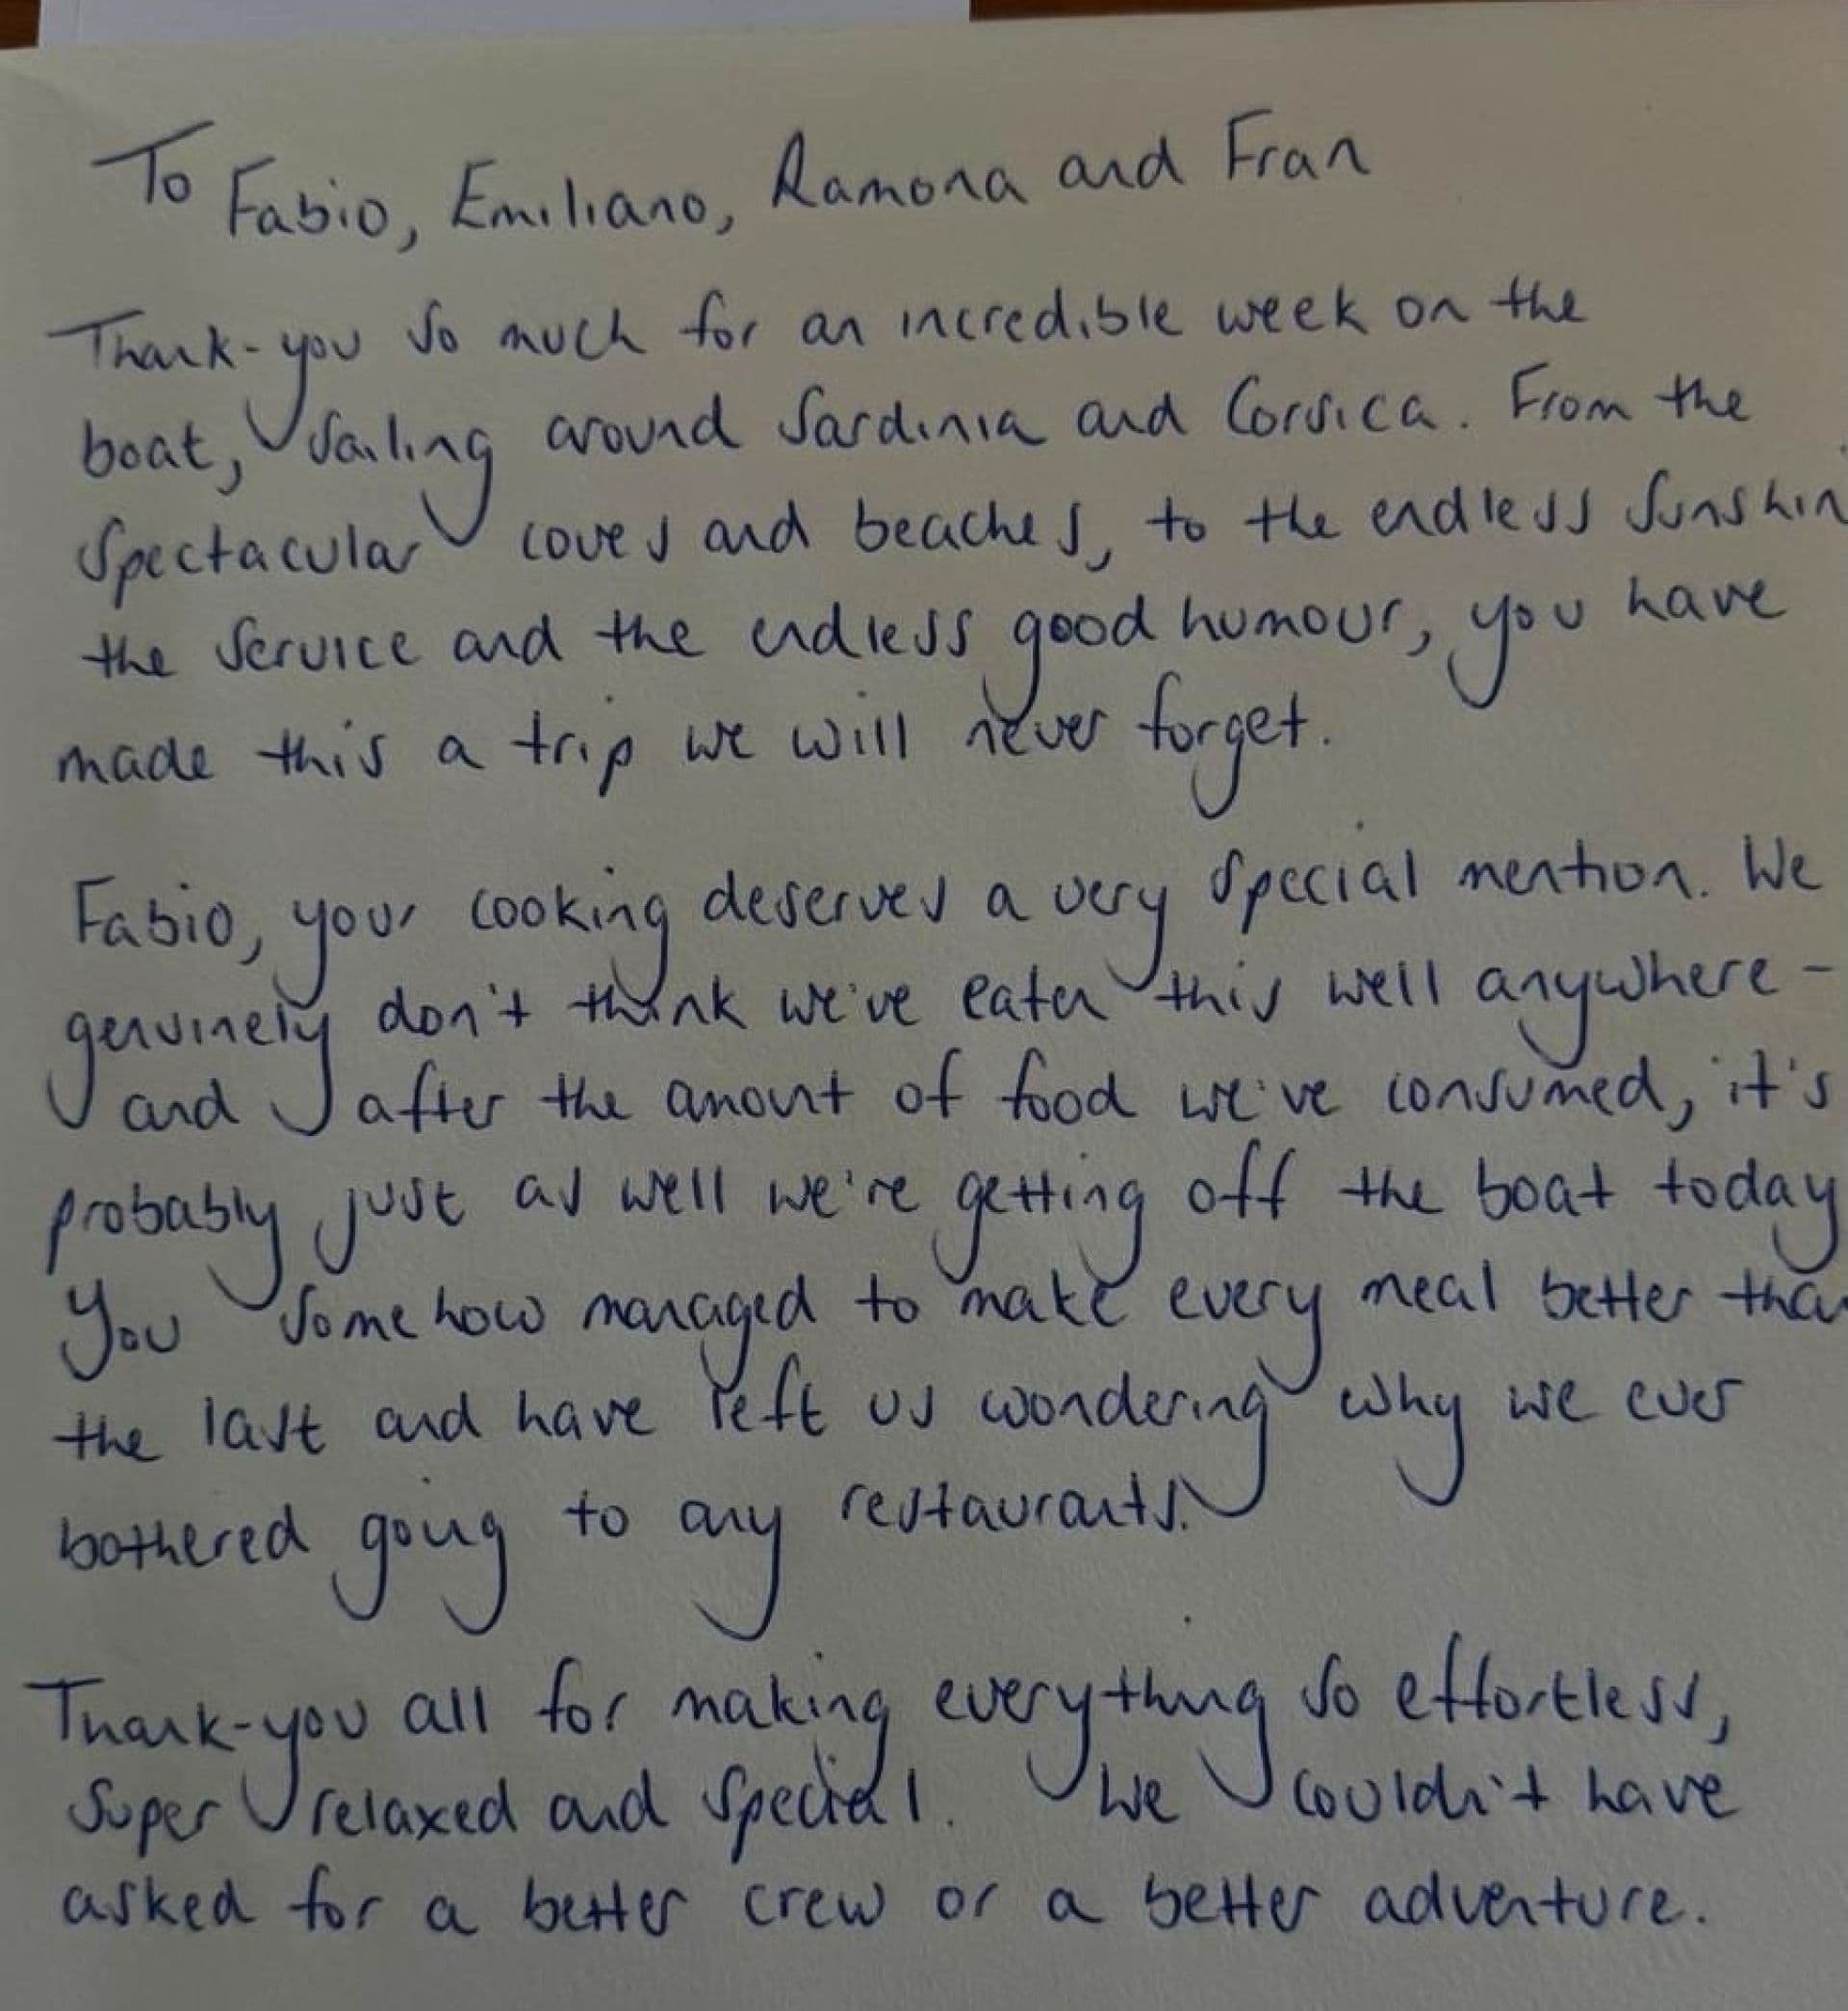 To Fabio, Emiliano, Ramona and Fran
Thank-you so much for an incredible week on the
boat, sailing around Sardinia and Corsica. From the
spectacular coves and beaches, to the endless sunshin
the service and the endless good humour, you have
made this a trip we will never forget.
Fabio, your cooking deserves a very special mention. We
genuinely don't think we've eaten this well anywhere -
and after the amount of food we've consumed, it's
probably just as well we're getting off the boat today
You somehow managed to make every meal better than
the last and have left us wondering why we ever
bothered going to any restaurants.
Thank-you all for making everything so effortless,
super relaxed and special. We couldn't have
asked for a better crew or a better adventure.